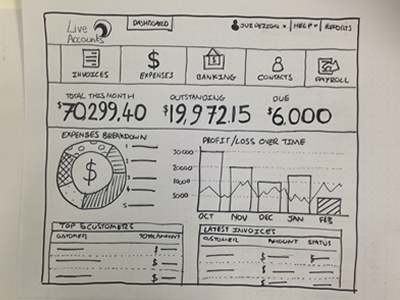 Live Accounts
DASHBOARD
JUZ DEZIGN
HELP
REPORTS
INVOICES
EXPENSES
BANKING
CONTACTS
PAYROLL
TOTAL THIS MONTH
$70299.40
OUTSTANDING
$19,972.15
DUE
$6,000
EXPENSES BREAKDOWN
$
1
2
3
4
5
PROFIT/LOSS OVER TIME
30000
20000
10000
5000
OCT NOV DEC JAN FEB
TOP 5 CUSTOMERS
CUSTOMER TOTAL AMOUNT
$
$
$
LATEST INVOICES
CUSTOMER AMOUNT STATUS
$ $
$